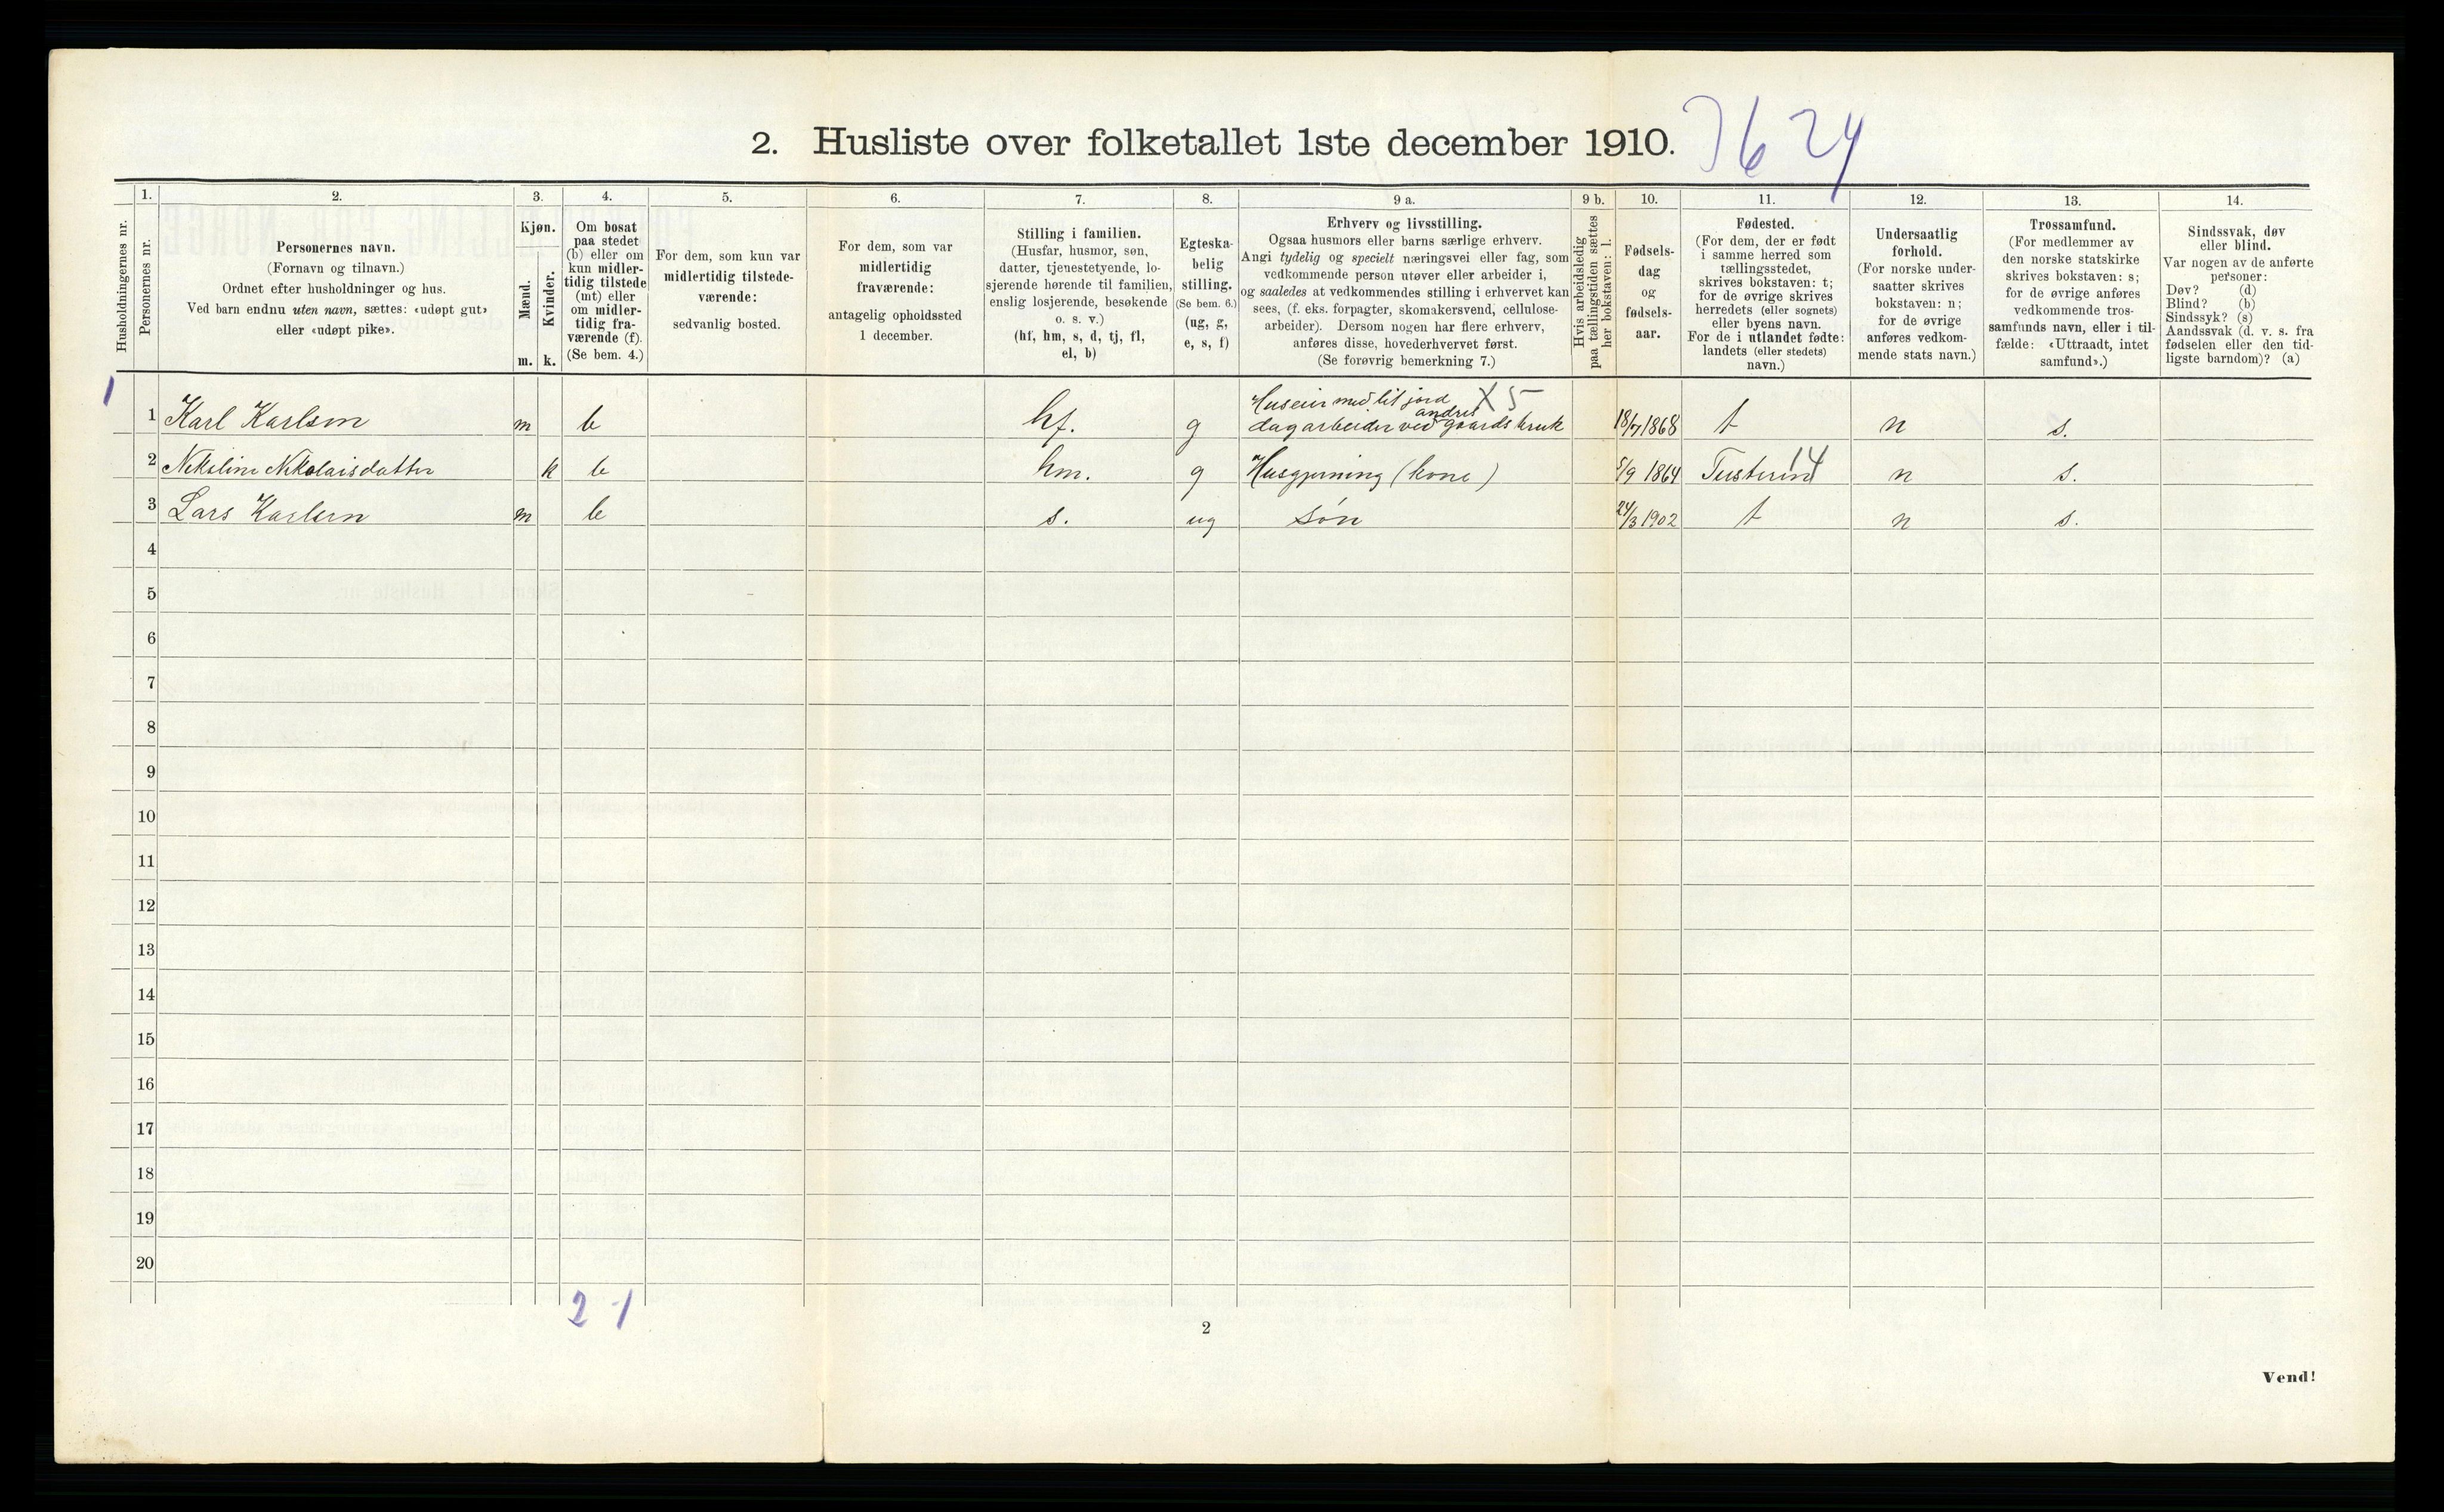 2. Husliste over folketallet 1ste december 1910. 3624
Husholdningernes nr.
1. Personernes nr.
2.
Personernes navn.
(Fornavn og tilnavn.)
Ordnet efter husholdninger og hus.
Ved barn endnu uten navn, sættes: «udøpt gut»
eller «udøpt pike».
3.
Kjøn.
Mænd.
m.
Kvinder.
k.
4.
Om bosat
paa stedet
(b) eller om
kun midler-
tidig tilstede
(mt) eller
om midler-
tidig fra-
værende (f).
(Se bem. 4.)
5.
For dem, som kun var
midlertidig tilstede-
værende:
sedvanlig bosted.
6.
For dem, som var
midlertidig
fraværende:
antagelig opholdssted
1 december.
7.
Stilling i familien.
(Husfar, husmor, søn,
datter, tjenestetyende, lo-
sjerende hørende til familien,
enslig losjerende, besøkende
o. s. v.)
(hf, hm, s, d, tj, fl,
el, b)
8.
Egteska-
belig
stilling.
(Se bem. 6.)
(ug, g,
e, s, f)
9 a.
Erhverv og livsstilling.
Ogsaa husmors eller barns særlige erhverv.
Angi tydelig og specielt næringsvei eller fag, som
vedkommende person utøver eller arbeider i,
og saaledes at vedkommendes stilling i erhvervet kan
sees, (f. eks. forpagter, skomakersvend, cellulose-
arbeider). Dersom nogen har flere erhverv,
anføres disse, hovederhvervet først.
(Se forøvrig bemerkning 7.)
9 b.
Hvis arbeidsledig
paa tællingstiden sættes
her bokstaven: l.
10.
Fødsels-
dag
og
fødsels-
aar.
11.
Fødested.
(For dem, der er født
i samme herred som
tællingsstedet,
skrives bokstaven: t;
for de øvrige skrives
herredets (eller sognets)
eller byens navn.
For de i utlandet fødte:
landets (eller stedets)
navn.)
12.
Undersaatlig
forhold.
(For norske under-
saatter skrives
bokstaven: n;
for de øvrige
anføres vedkom-
mende stats navn.)
13.
Trossamfund.
(For medlemmer av
den norske statskirke
skrives bokstaven: s;
for de øvrige anføres
vedkommende tros-
samfunds navn, eller i til-
fælde: «Uttraadt, intet
samfund».)
14.
Sindssvak, døv
eller blind.
Var nogen av de anførte
personer:
Døv? (d)
Blind? (b)
Sindssyk? (s)
Aandssvak (d. v. s. fra
fødselen eller den tid-
ligste barndom)? (a)
1
Huseier med lit jord X 5
andres
1 Karl Karlsen m b hf. g dagarbeider ved gaardsbruk 18/7 1868 t n s.
2 Nikoline Nikolaisdatter k b hm. g Husgjerning (kone) 5/9 1864 Tusteren 14 n s.
3 Lars Karlsen m b s. ug søn 24/3 1902 t n s.
4
5
6
7
8
9
10
11
12
13
14
15
16
17
18
19
20
2-1
2
Vend!